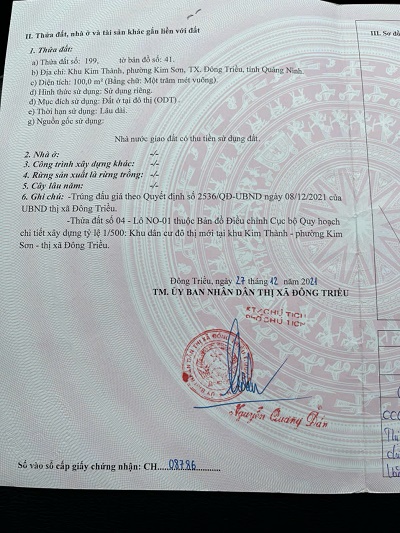 II. Thửa đất, nhà ở và tài sản khác gắn liền với đất
III. Sơ
1. Thửa đất:
a) Thửa đất số: 199, tờ bản đồ số: 41.
b) Địa chỉ: Khu Kim Thành, phường Kim Sơn, TX. Đông Triều, tỉnh Quảng Ninh.
c) Diện tích: 100,0 m² (Bằng chữ: Một trăm mét vuông).
d) Hình thức sử dụng: Sử dụng riêng.
đ) Mục đích sử dụng: Đất ở tại đô thị (ODT).
e) Thời hạn sử dụng: Lâu dài.
g) Nguồn gốc sử dụng:
Nhà nước giao đất có thu tiền sử dụng đất.
2. Nhà ở: -/-
3. Công trình xây dựng khác: -/-
4. Rừng sản xuất là rừng trồng: -/-
5. Cây lâu năm: -/-
6. Ghi chú: -Trúng đấu giá theo Quyết định số 2536/QĐ-UBND ngày 08/12/2021 của
UBND thị xã Đông Triều.
-Thửa đất số 04 - Lô NO-01 thuộc Bản đồ Điều chỉnh Cục bộ Quy hoạch
chi tiết xây dựng tỷ lệ 1/500: Khu dân cư đô thị mới tại khu Kim Thành - phường Kim
Sơn - thị xã Đông Triều.
Đông Triều, ngày 27 tháng 12 năm 2021
TM. ỦY BAN NHÂN DÂN THỊ XÃ ĐÔNG TRIỀU
KT/CHỦ TỊCH
PHÓ CHỦ TỊCH
Nguyễn Quang Dân
Số vào sổ cấp giấy chứng nhận: CH.....08786...........